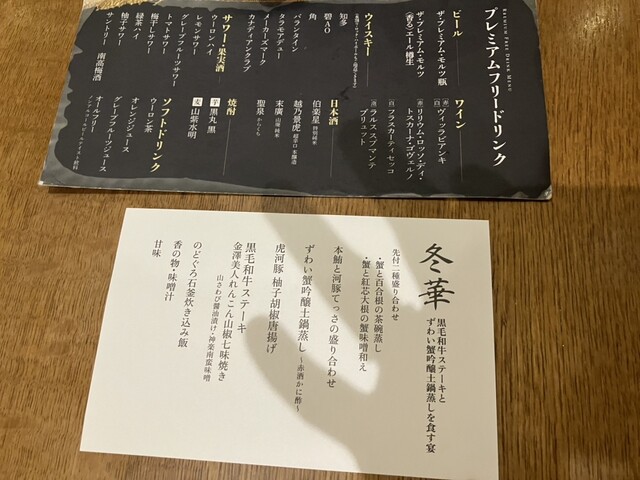 プレミアムフリードリンク
PREMIUM FREE DRINK MENU
ビール
ザ・プレミアム・モルツ 瓶
ザ・プレミアム・モルツ
〈香る〉エール 樽生
ウイスキー
知多
碧Ao
角
バランタイン
タラモアデュー
メーカーズマーク
カナディアンクラブ
サワー・果実酒
ウーロンハイ
レモンサワー
グレープフルーツサワー
トマトサワー
梅干しサワー
緑茶ハイ
柚子サワー
サントリー 南高梅酒
ワイン
白 ヴィッラビアンキ
赤 リリウム・ロッソ・ディ・
トスカーナ・ゴヴェルノ
白 フラスカーティセッコ
泡 ラルス スプマンテ
ブリュット
日本酒
伯楽星 特別純米
越乃景虎 超辛口 本醸造
末廣 山廃 純米
聖泉 からくち
焼酎
芋 黒丸 黒
麦 山紫水明
ソフトドリンク
ウーロン茶
オレンジジュース
グレープフルーツジュース
オールフリー
冬華
黒毛和牛ステーキと
ずわい蟹吟醸土鍋蒸しを食す宴
先付二種盛り合わせ
・蟹と百合根の茶碗蒸し
・蟹と紅芯大根の蟹味噌和え
本鮪と河豚てっさの盛り合わせ
ずわい蟹吟醸土鍋蒸し ～赤酒かに酢～
虎河豚 柚子胡椒唐揚げ
黒毛和牛ステーキ
金澤美人れんこん山椒七味焼き
山さわび醤油漬け・神楽南蛮味噌
のどぐろ石釜炊き込み飯
香の物・味噌汁
甘味